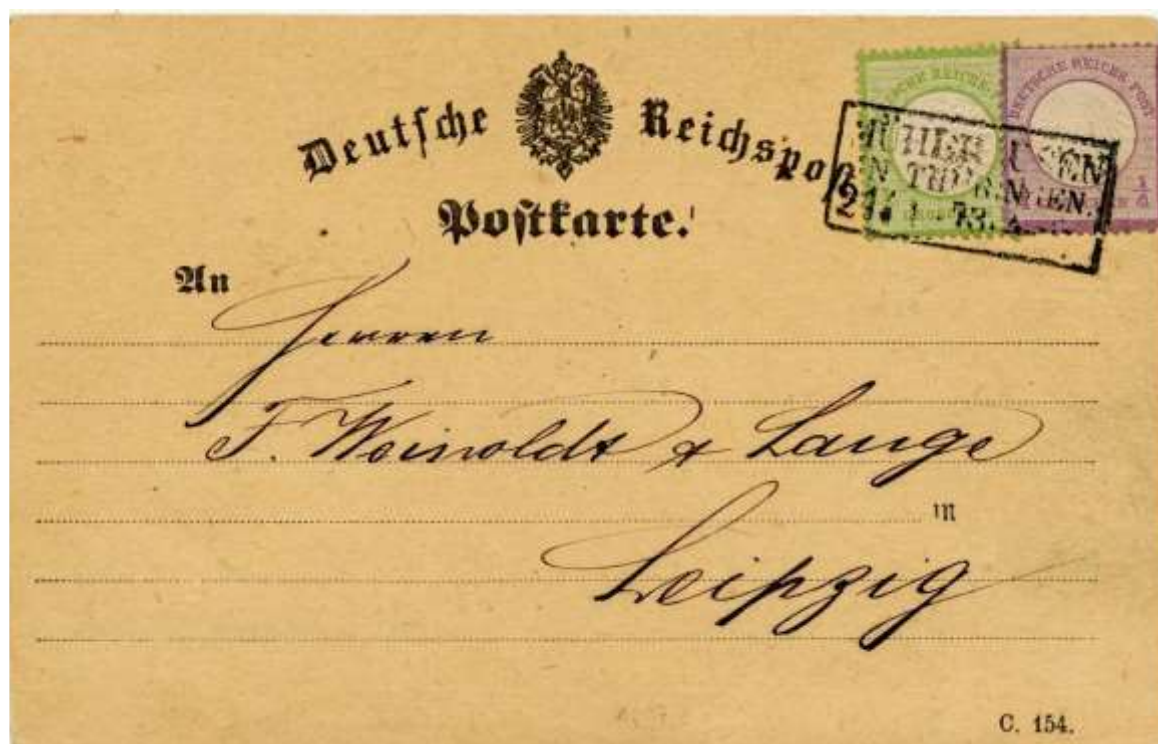 Deutsche Reichspost
Postkarte.
DEUTSCHE REICHS-POST
IN THÜRINGEN.
An
Herren
F. Weinoldt & Lange
in
Leipzig
C. 154.